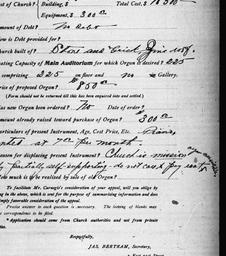 of Church? Building, $ Total Cost, $
Equipment, $ 300
Amount of Debt? No debt
ow is Debt provided for?
hurch built of? Stone and Brick,
ating Capacity of Main Auditorium for which Organ desired? 225
omprising 225 on floor and no in Gallery.
rice of proposed Organ? $850
(Form should not be returned till this has been enquired into and settled.)
as some Organ been ordered? No Date of order?
mount already raised toward purchase of Organ? $300
articulars of present Instrument, Age, Cost Price, Etc.
at 7 per month.
eason for displacing present Instrument? Church is mission
partially self supporting do not care for
ow much is to be realized by sale of old Organ?
To facilitate Mr. Carnegie's consideration of your appeal, will you oblige by
ing in the above, which is sent for the purpose of summarizing information and does
imply favorable consideration of the appeal.
Precise answer to each question is necessary. The leaving of blanks may
correspondence to be filed.
*Application should come from Church authorities and not from private
Respectfully,
JAS. BERTRAM, Secretary,